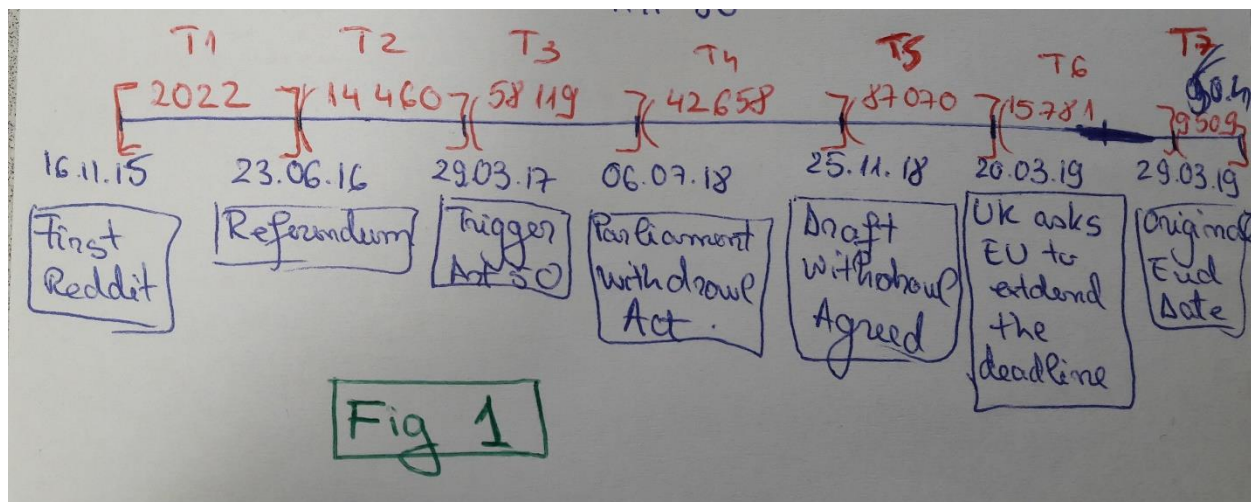 T1 T2 T3 T4 T5 T6 T7
2022 14460 58119 42658 87070 15781 9509
16.11.15 23.06.16 29.03.17 06.07.18 25.11.18 20.03.19 29.03.19
First
Reddit
Referendum
Trigger
Art 50
Parliament
Withdrowl
Act.
Draft
Withdrowl
Agreed
UK asks
EU to
extdend
the
deadline
Original
End
Date
Fig 1